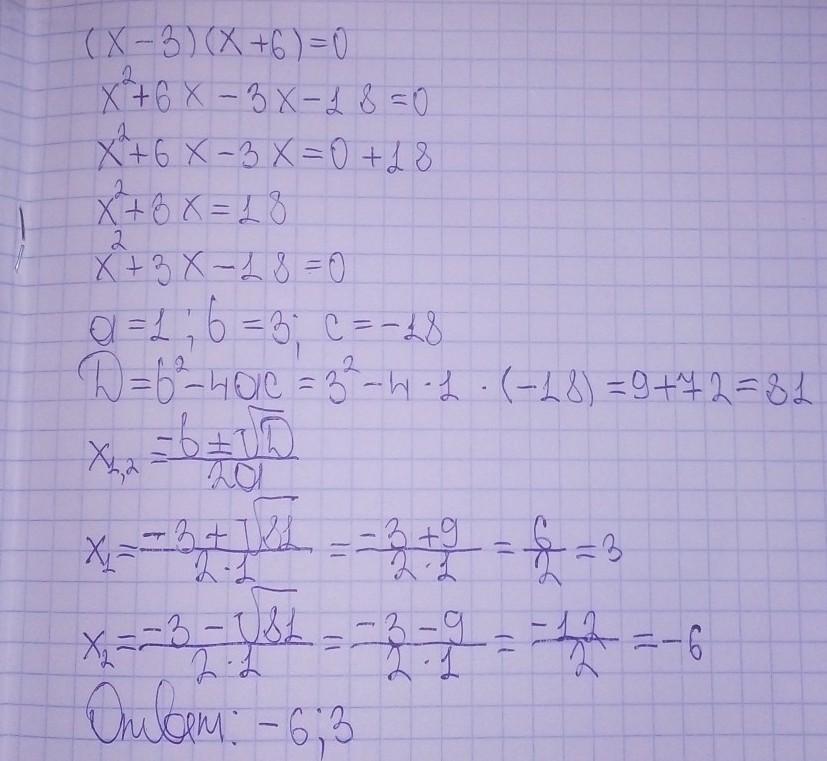 (x-3)(x+6)=0
x²+6x-3x-18=0
x²+6x-3x=0+18
x²+3x=18
x²+3x-18=0
a=1; b=3; c=-18
D=b²-4ac=3²-4·1·(-18)=9+72=81
x₁,₂=(-b±√D)/2a
x₁=(-3+√81)/(2·1)=(-3+9)/(2·1)=6/2=3
x₂=(-3-√81)/(2·1)=(-3-9)/(2·1)=-12/2=-6
Ответ: -6;3